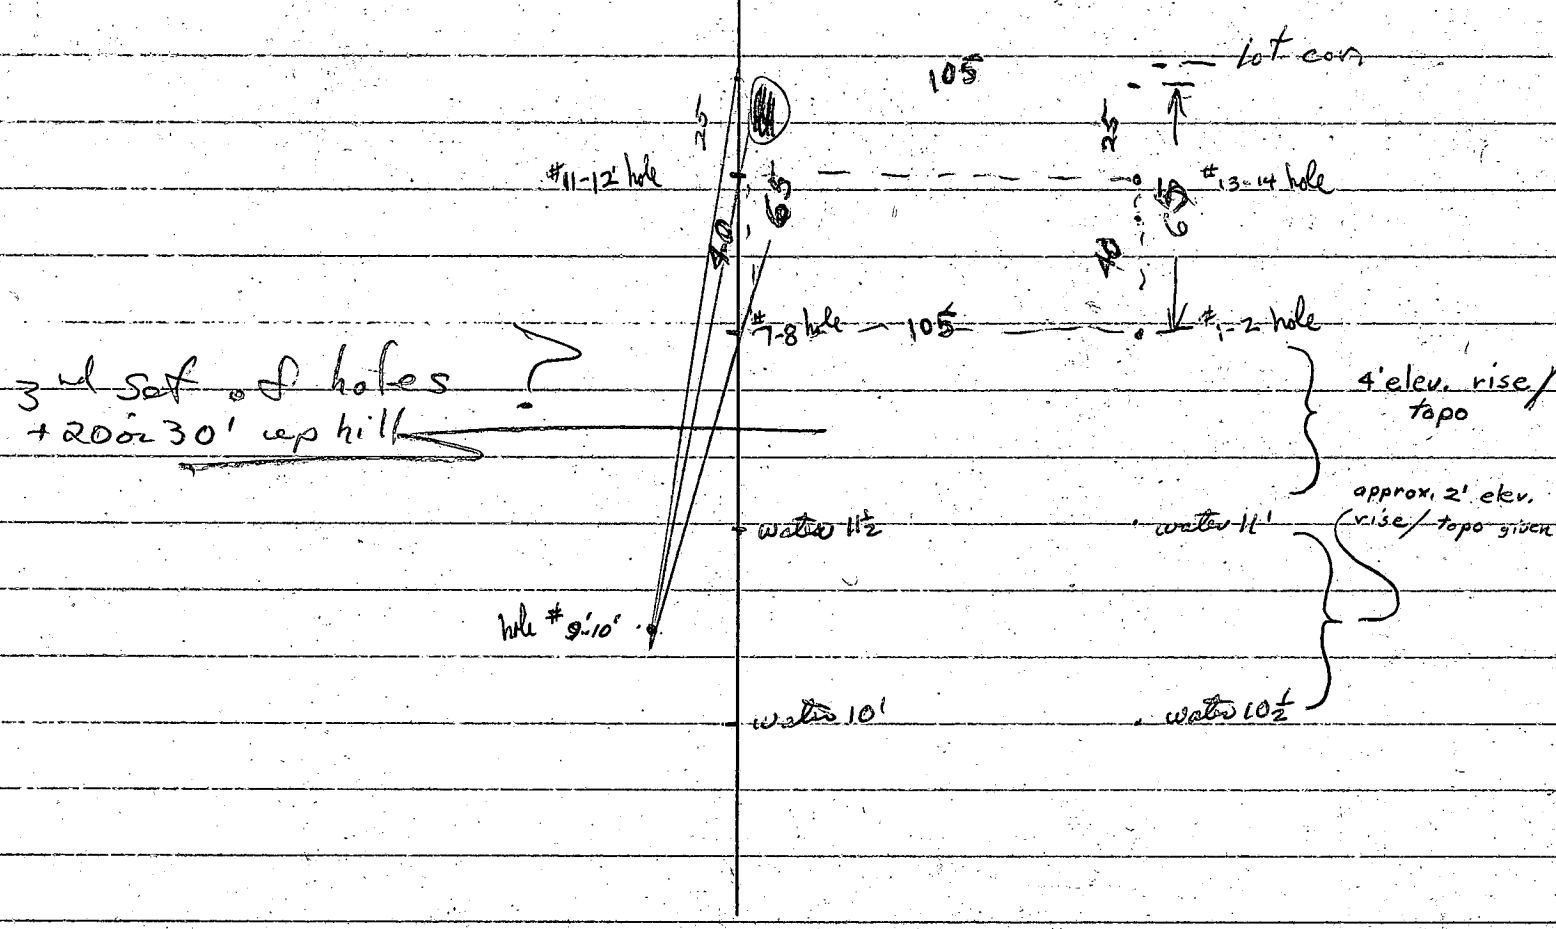 lot corn
105
25
25
#11-12' hole
65
#13-14 hole
65
40
40
#7-8 hole
105
#1-2 hole
3rd set of holes ?
+20 or 30' up hill
4' elev. rise/
topo
approx. 2' elev.
rise/ topo given
water 11½
water 11'
hole #9'-10'
water 10'
water 10½